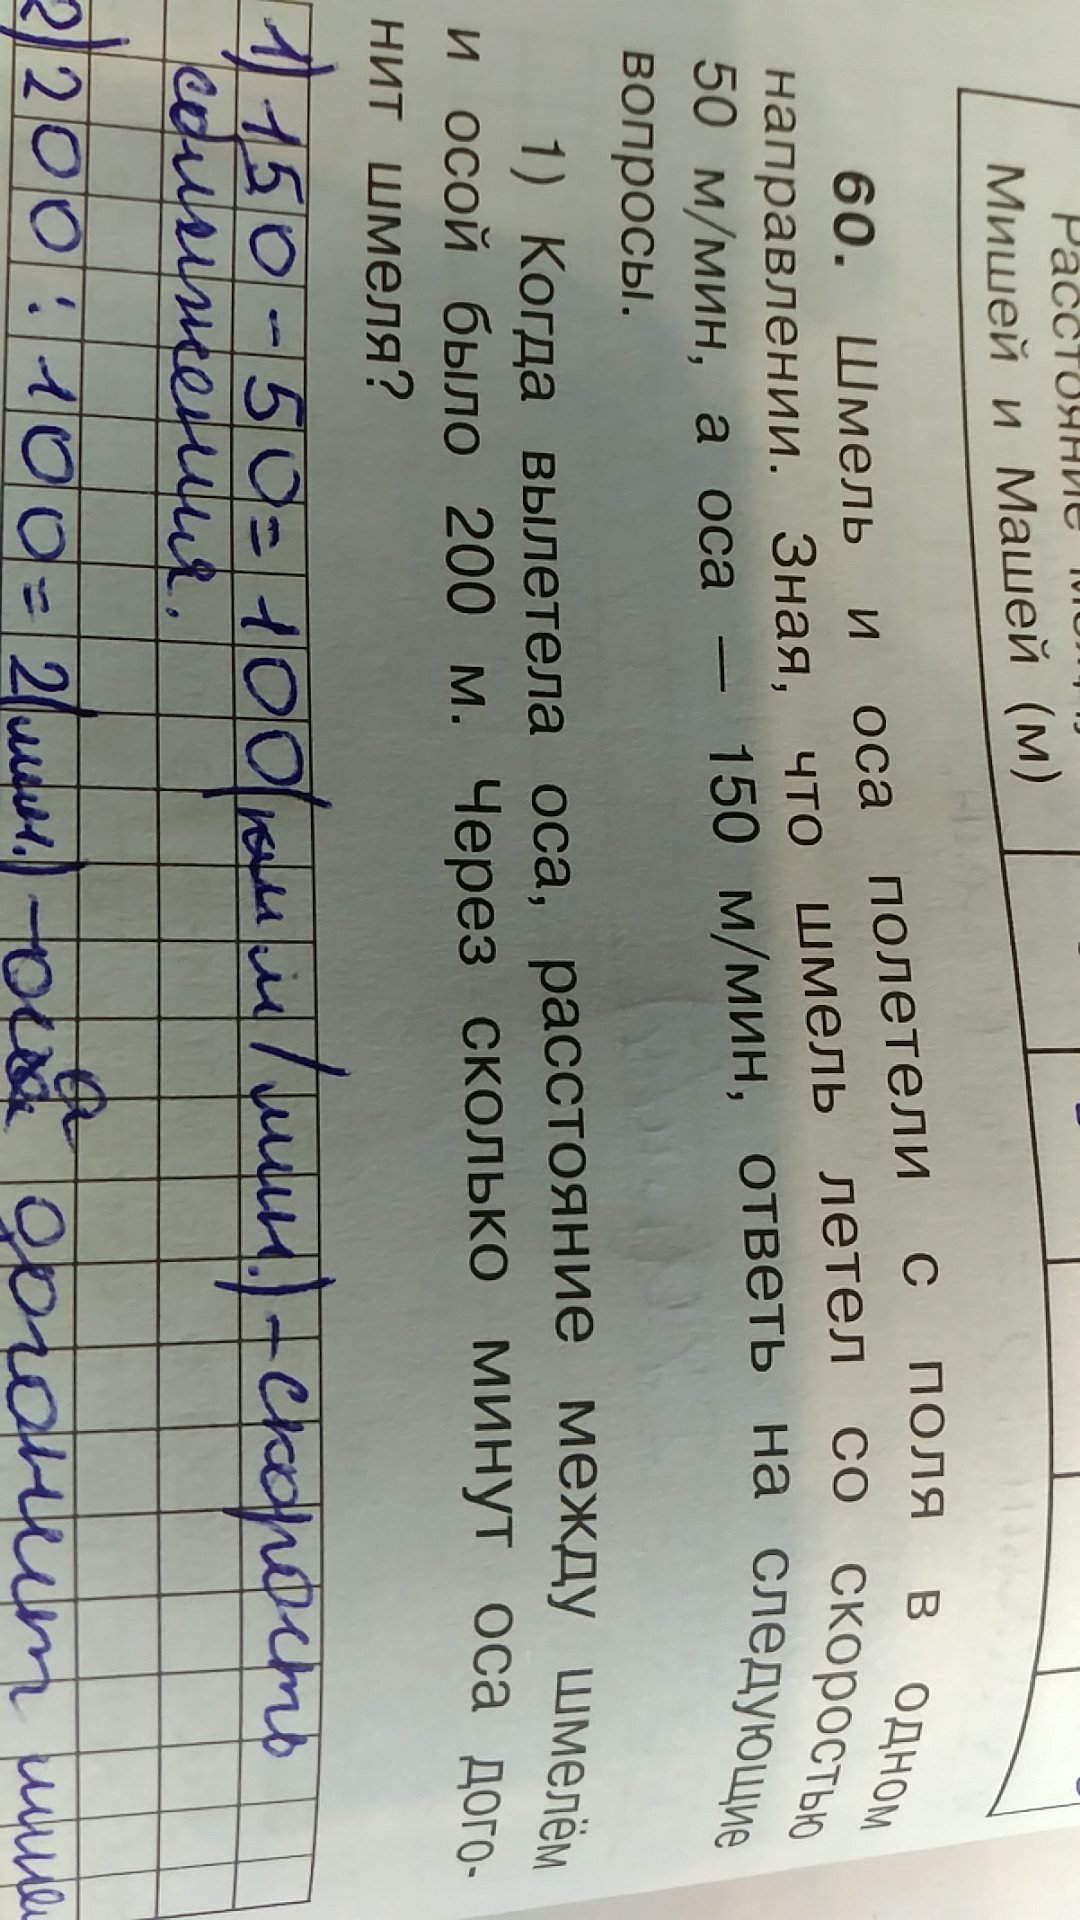 Мишей и Машей (м)
60. Шмель и оса полетели с поля в одном
направлении. Зная, что шмель летел со скоростью
50 м/мин, а оса — 150 м/мин, ответь на следующие
вопросы.
1) Когда вылетела оса, расстояние между шмелём
и осой было 200 м. Через сколько минут оса дого-
нит шмеля?
1) 150-50=100( м/мин.)-скорость
сближения.
2) 200:100=2(мин.)-оса догонит